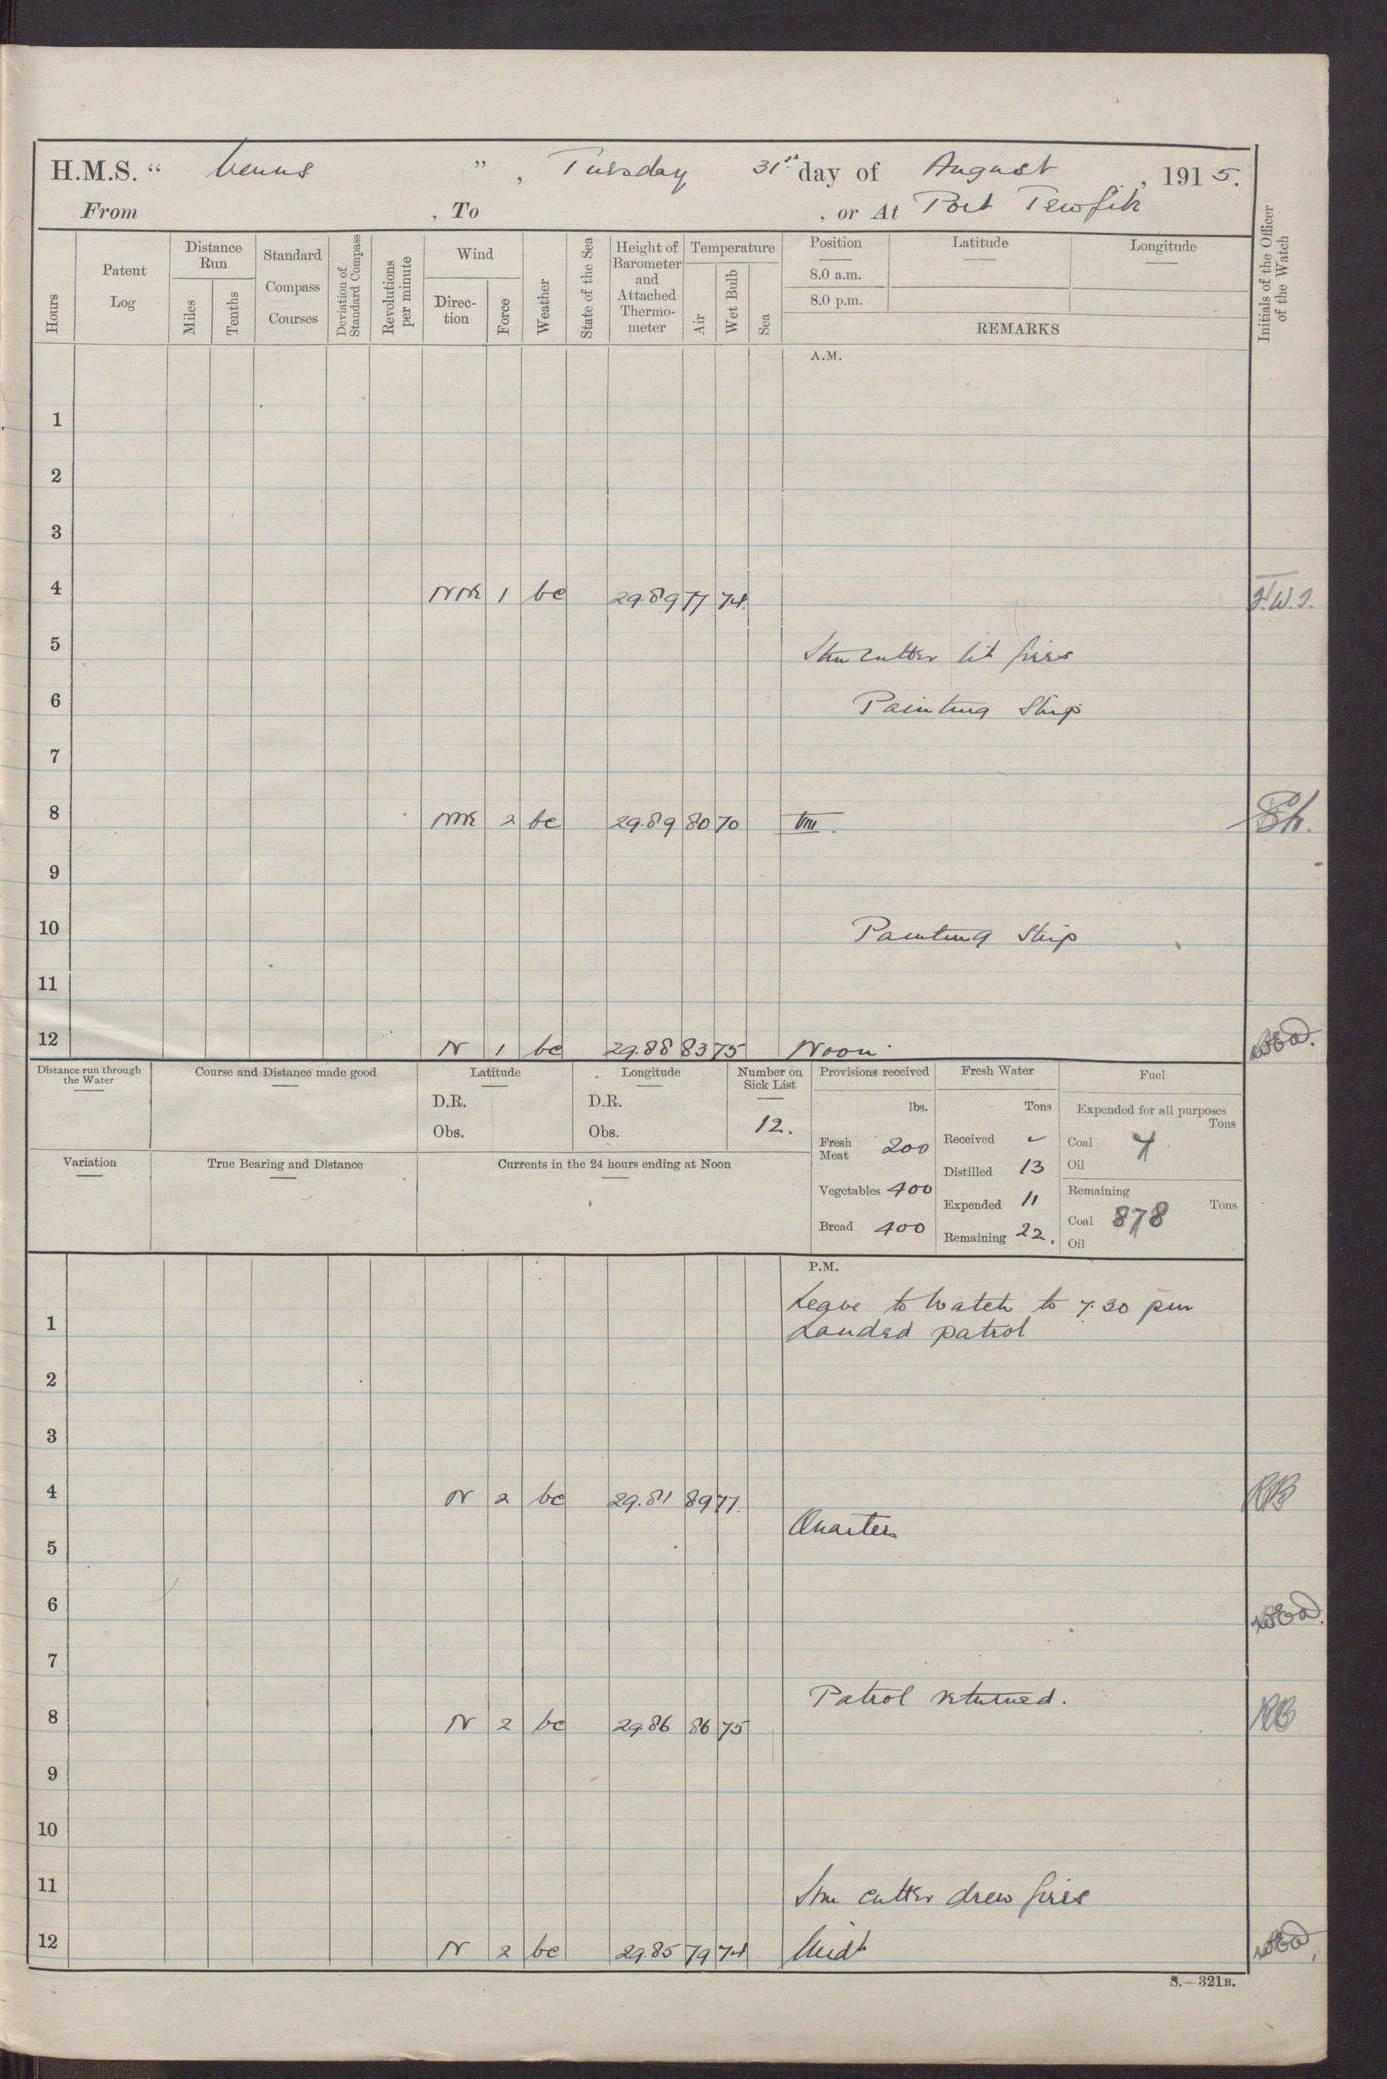 H.M.S. “ Venus ” , Tuesday 31st day of August , 1915.
From , To , or At Port Tewfik
Hours
Patent Log
Distance Run
Miles
Tenths
Standard Compass Courses
Deviation of Standard Compass
Revolutions per minute
Wind
Direc-tion
Force
Weather
State of the Sea
Height of Barometer and Attached Thermo-meter
Temperature
Air
Wet Bulb
Sea
Position
8.0 a.m.
8.0 p.m.
Latitude
Longitude
REMARKS
Initials of the Officer of the Watch
A.M.
1
2
3
4 NNE 1 bc 29.89 77 74.
5 Stm cutter lit fires
6 Painting Ship
7
8 NNE 2 bc 29.89 80 70 VIII.
9
10 Painting Ship
11
12 N 1 bc 29.88 83 75 Noon.
Distance run through the Water
Course and Distance made good
Latitude
D.R.
Obs.
Longitude
D.R.
Obs.
Number on Sick List
12.
Provisions received
lbs.
Fresh Meat 200
Vegetables 400
Bread 400
Fresh Water
Tons
Received
Distilled 13
Expended 11
Remaining 22.
Fuel
Expended for all purposes
Tons
Coal
Oil
Remaining
Tons
Coal 878
Oil
Variation
True Bearing and Distance
Currents in the 24 hours ending at Noon
P.M.
Leave to Watch to 7.30 pm
1 Landed patrol
2
3
4 N 2 bc 29.81 89 77. RB
Quarters
5
6
7
Patrol returned.
8 N 2 bc 29.86 86 75 RB
9
10
11 Stm cutter drew fires
12 N 2 bc 29.85 79 74 Midt
S.—321B.